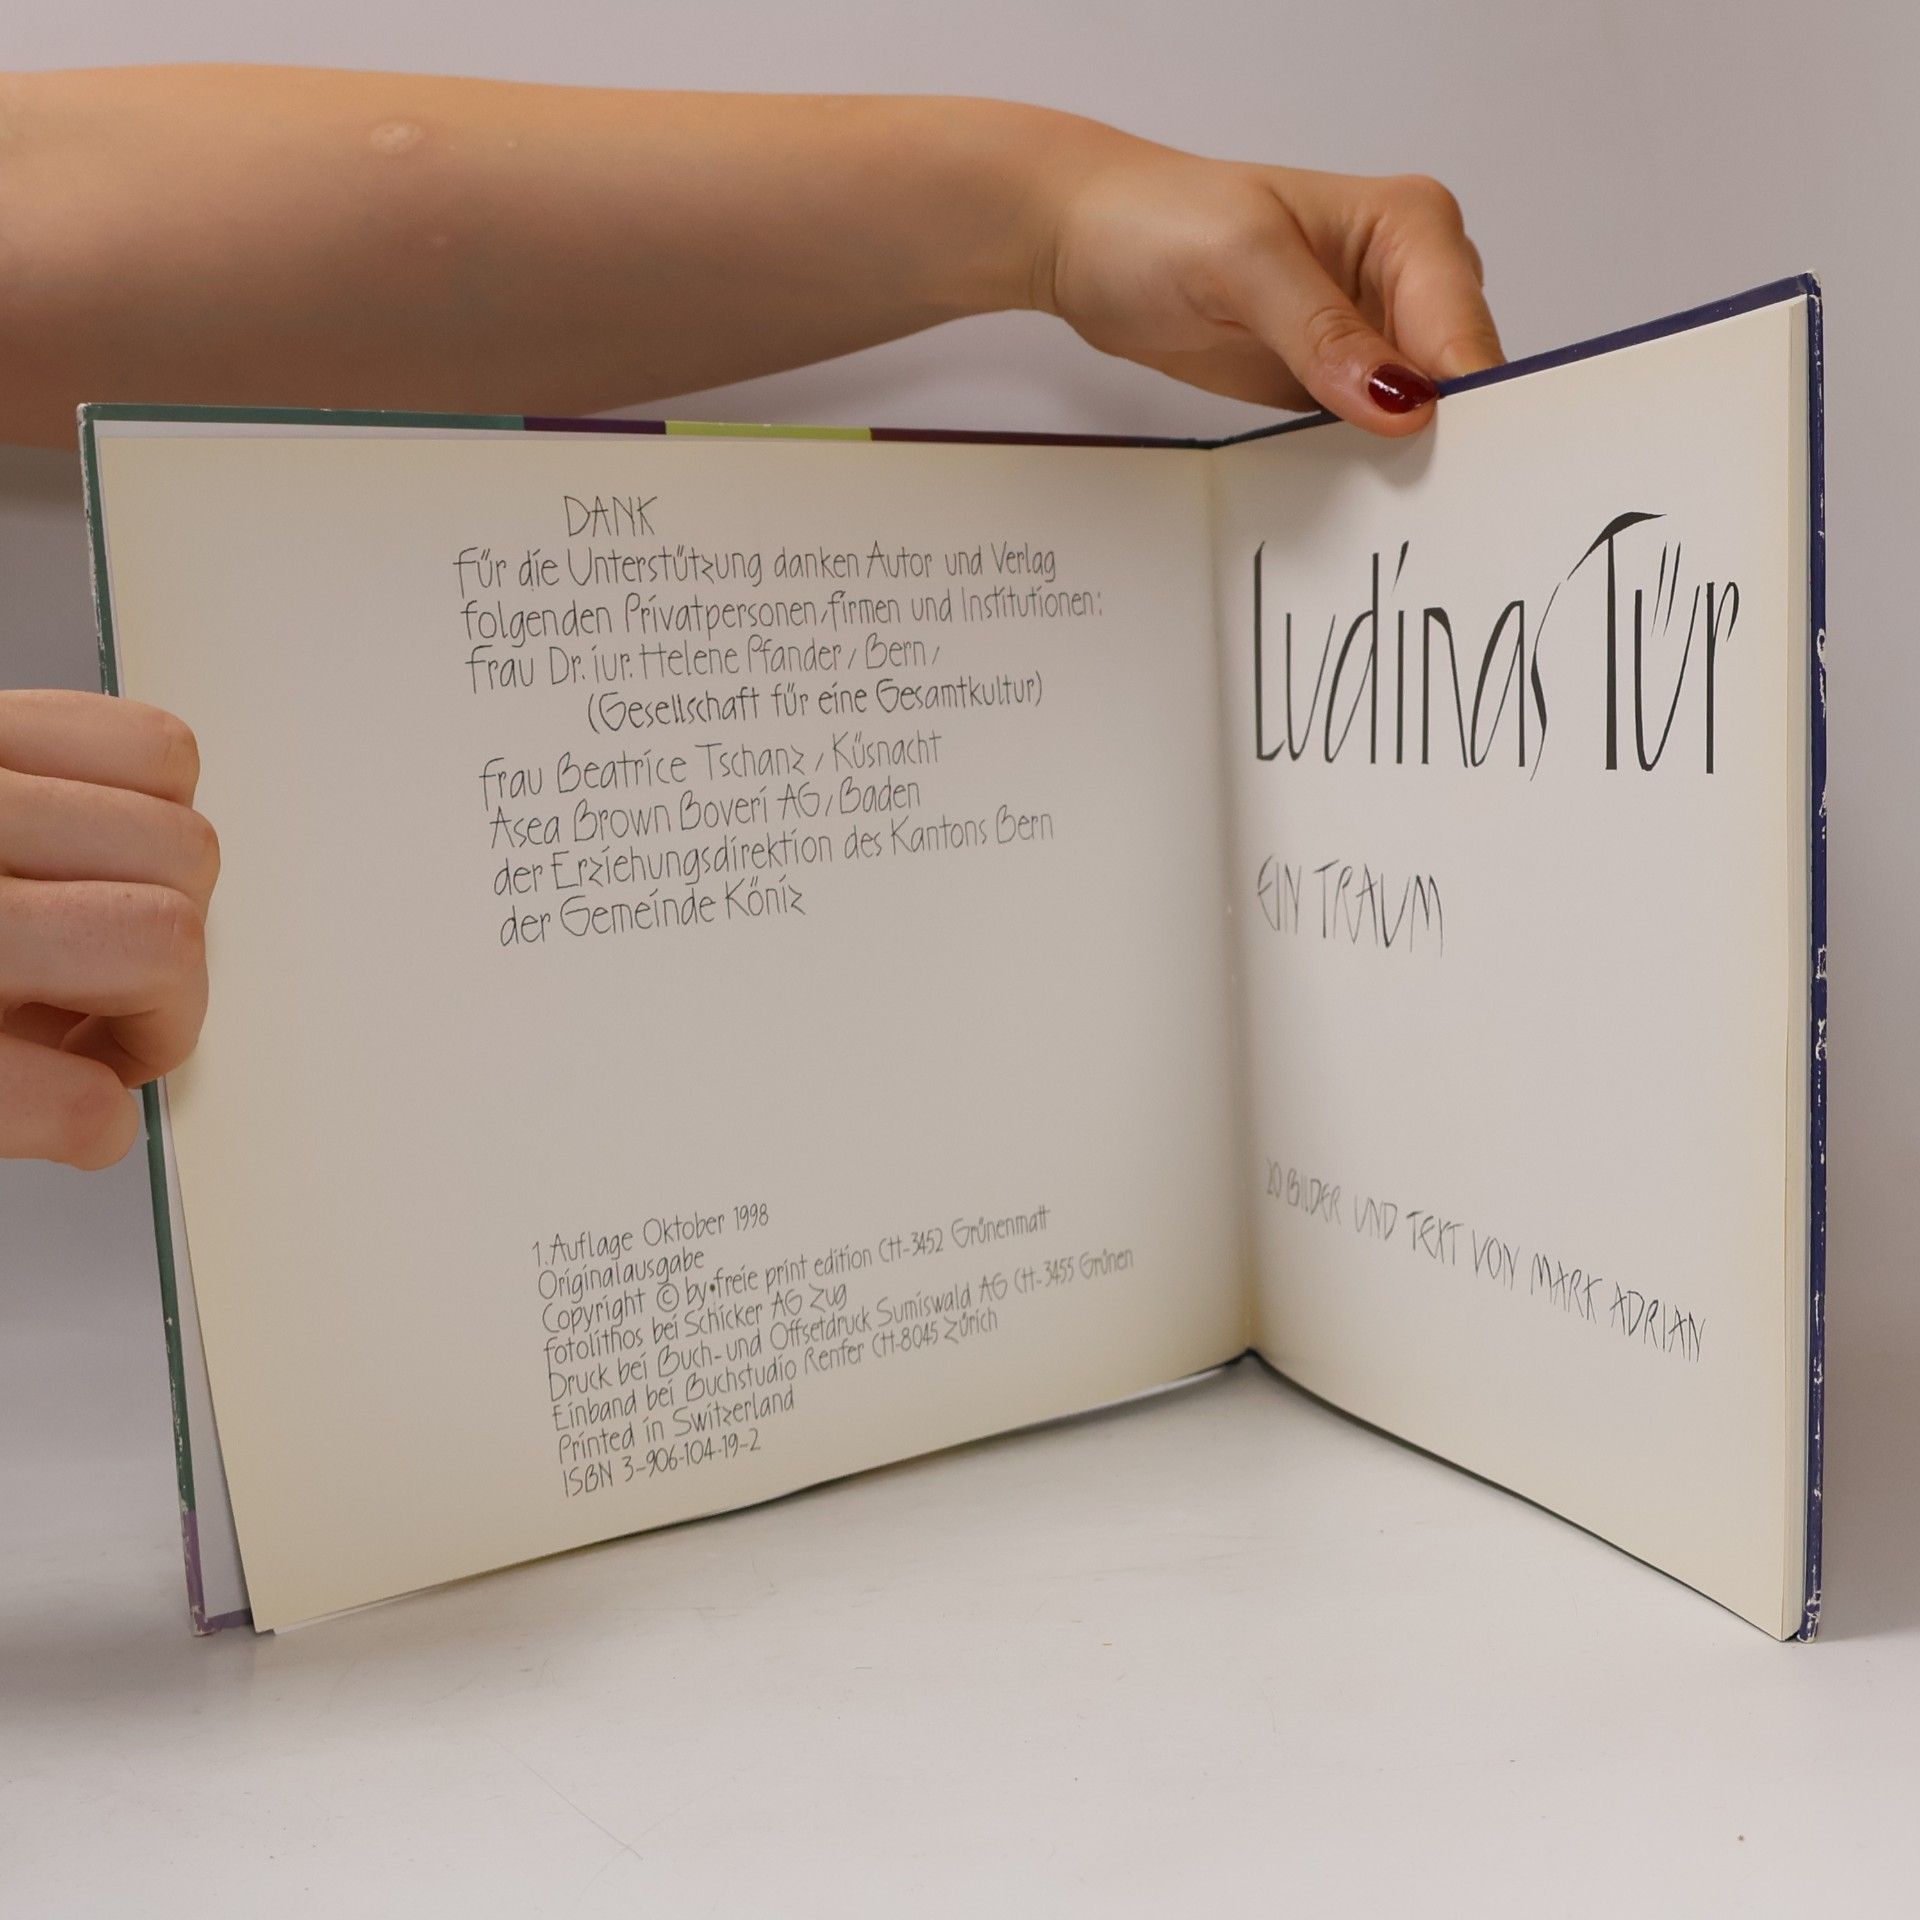 DANK
Für die Unterstützung danken Autor und Verlag
folgenden Privatpersonen, Firmen und Institutionen:
Frau Dr. iur. Helene Pfander, Bern,
(Gesellschaft für eine Gesamtkultur)
Frau Beatrice Tschanz, Küsnacht
Asea Brown Boveri AG, Baden
der Erziehungsdirektion des Kantons Bern
der Gemeinde Köniz
1. Auflage Oktober 1998
Originalausgabe
Copyright © by • freie print edition CH-3452 Grünenmatt
Fotolithos bei Schicker AG Zug
Druck bei Buch- und Offsetdruck Sumiswald AG CH-3455 Grünen
Einband bei Buchstudio Renfer CH-8045 Zürich
Printed in Switzerland
ISBN 3-906-104-19-2
Ludinas Tür
EIN TRAUM
20 BILDER UND TEXT VON MARK ADRIAN